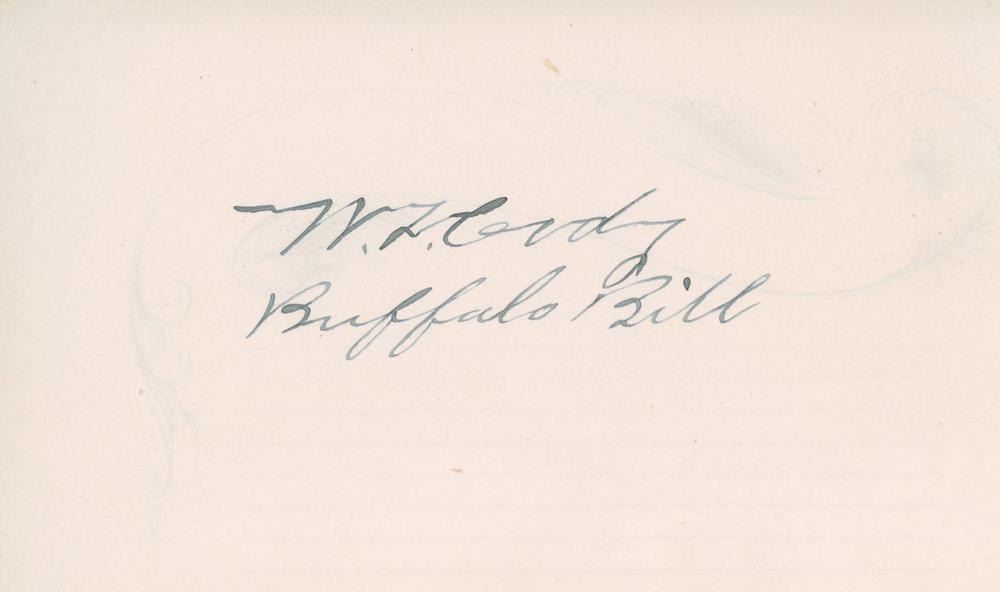 W.F. Cody
Buffalo Bill